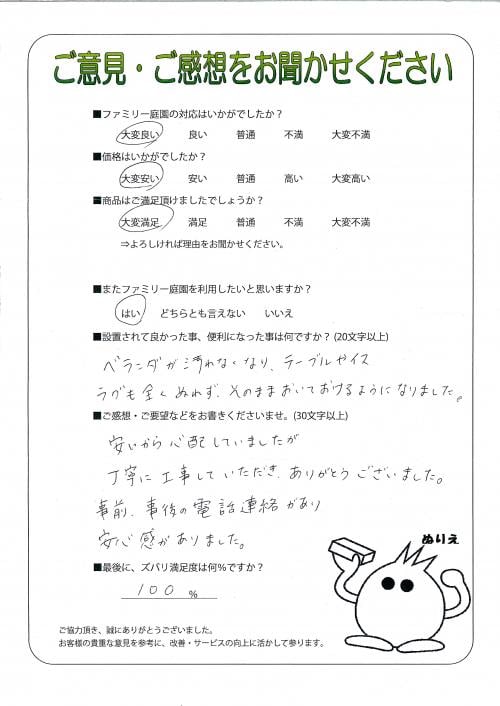 ご意見・ご感想をお聞かせください
■ファミリー庭園の対応はいかがでしたか？
大変良い 良い 普通 不満 大変不満
■価格はいかがでしたか？
大変安い 安い 普通 高い 大変高い
■商品はご満足頂けましたでしょうか？
大変満足 満足 普通 不満 大変不満
⇒よろしければ理由をお聞かせください。
■またファミリー庭園を利用したいと思いますか？
はい どちらとも言えない いいえ
■設置されて良かった事、便利になった事は何ですか？(20文字以上)
ベランダが汚れなくなり、テーブルやイス
ラグも全くぬれず、そのままおいておけるようになりました。
■ご感想・ご要望などをお書きくださいませ。(30文字以上)
安いから心配していましたが
丁寧に工事していただき、ありがとうございました。
事前、事後の電話連絡があり
安心感がありました。
ぬりえ
■最後に、ズバリ満足度は何%ですか？
100 %
ご協力頂き、誠にありがとうございました。
お客様の貴重な意見を参考に、改善・サービスの向上に活かして参ります。